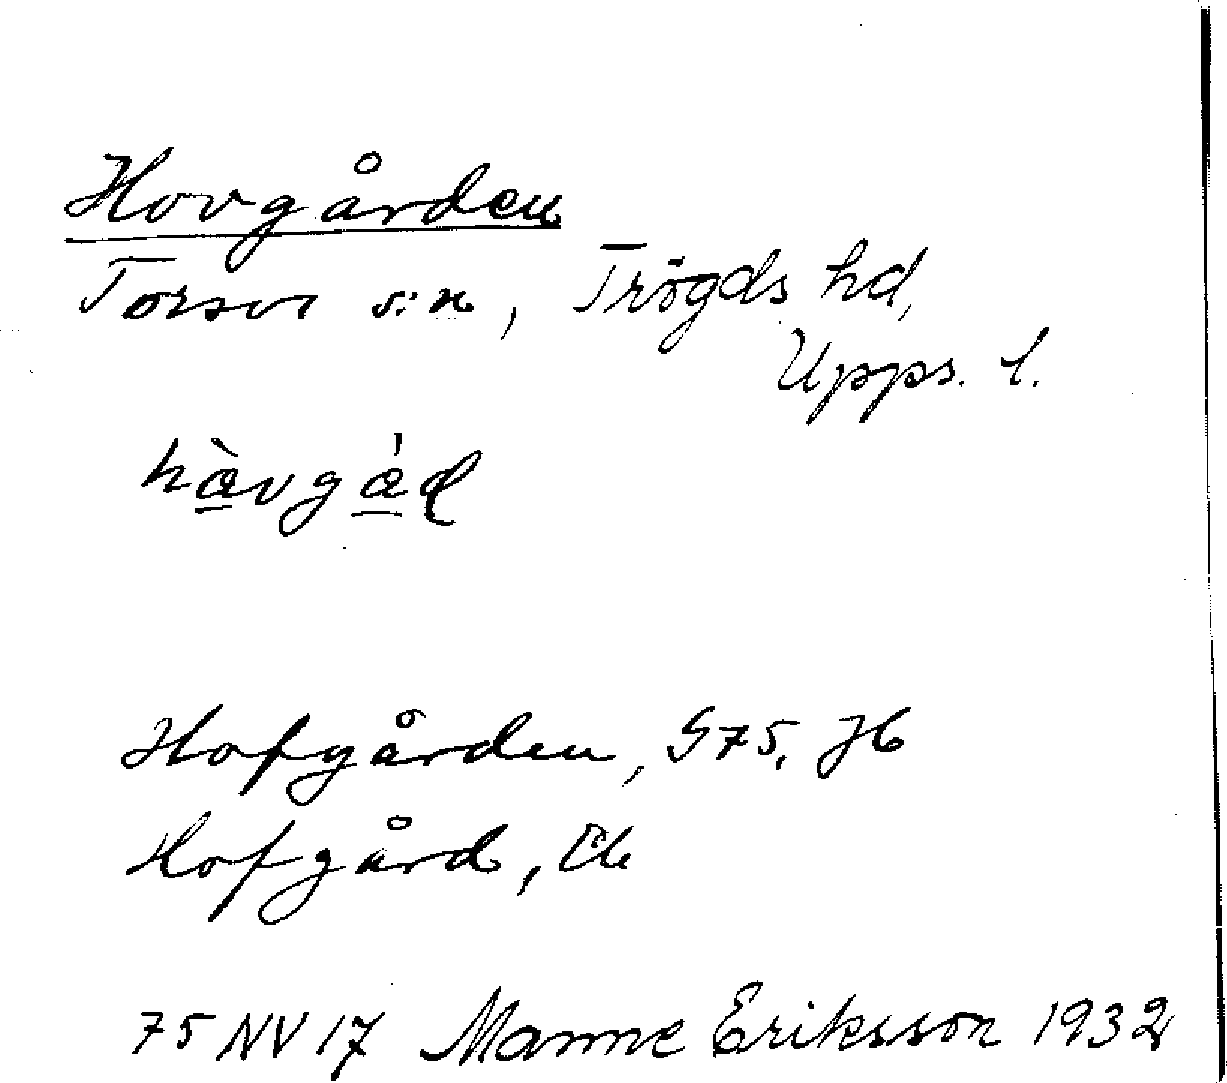 Hovgården
Torsvi s:n, Trögds hd,
Upps. l.
hàvgáɖ
Hofgården, G75, Jb
Hofgård, Ek
75 NV 17 Manne Eriksson 1932